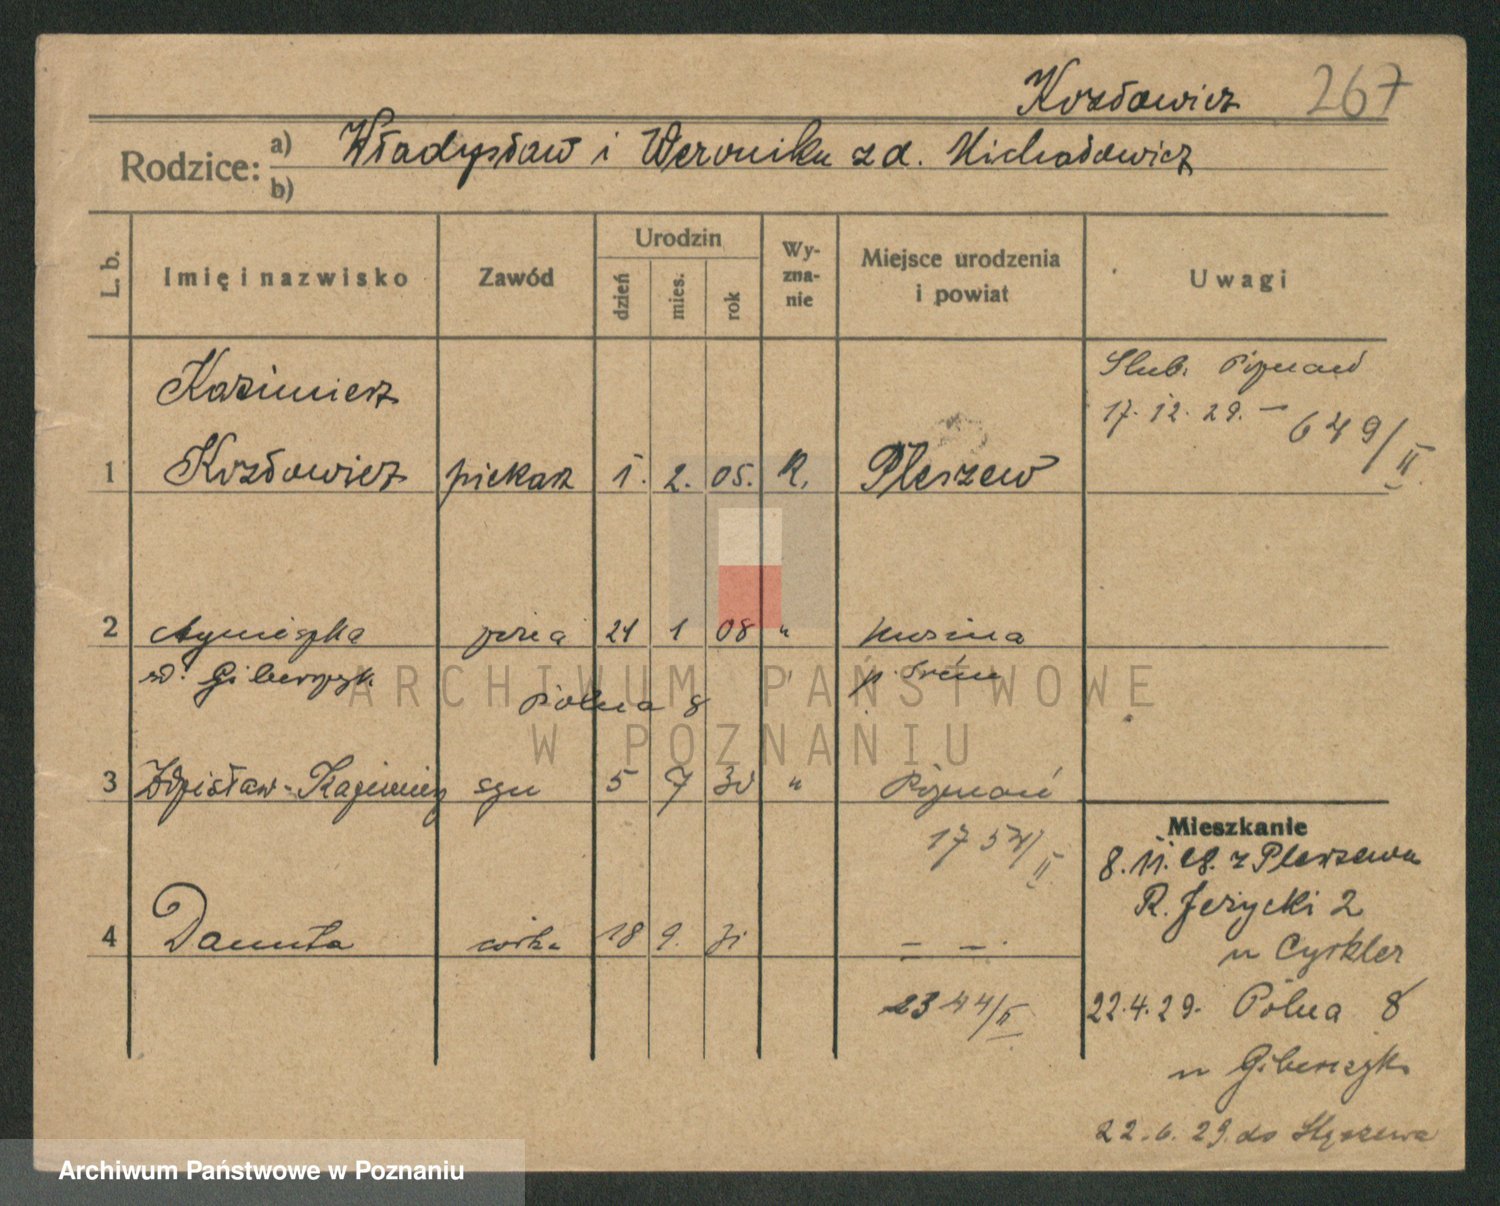 Kozłowicz 267
Rodzice: a) Władysław i Weronika z d. Michałowicz
b)
L. b. Imię i nazwisko Zawód Urodzin dzień mies. rok Wy-zna-nie Miejsce urodzenia i powiat Uwagi
Kazimierz
Slub. Poznań
17. 12. 29. — 649/II
1 Kozłowicz piekarz 1. 2. 05. R. Pleszew
2 Agnieszka żona 21 1 08 "
p. Śrem
Polna 8
3 Zdzisław-Kazimierz syn 5 7 30 " Poznań
1754/II
Mieszkanie
8. 11. 28. z Pleszewa
R. Jeżycki 2
u Cyrkler
4 Danuta córka 18 9. 31 — —.
2344/II
22.4.29. Polna 8
u Giberczyk
22. 6. 29. do
ARCHIWUM PAŃSTWOWE
W POZNANIU
Archiwum Państwowe w Poznaniu